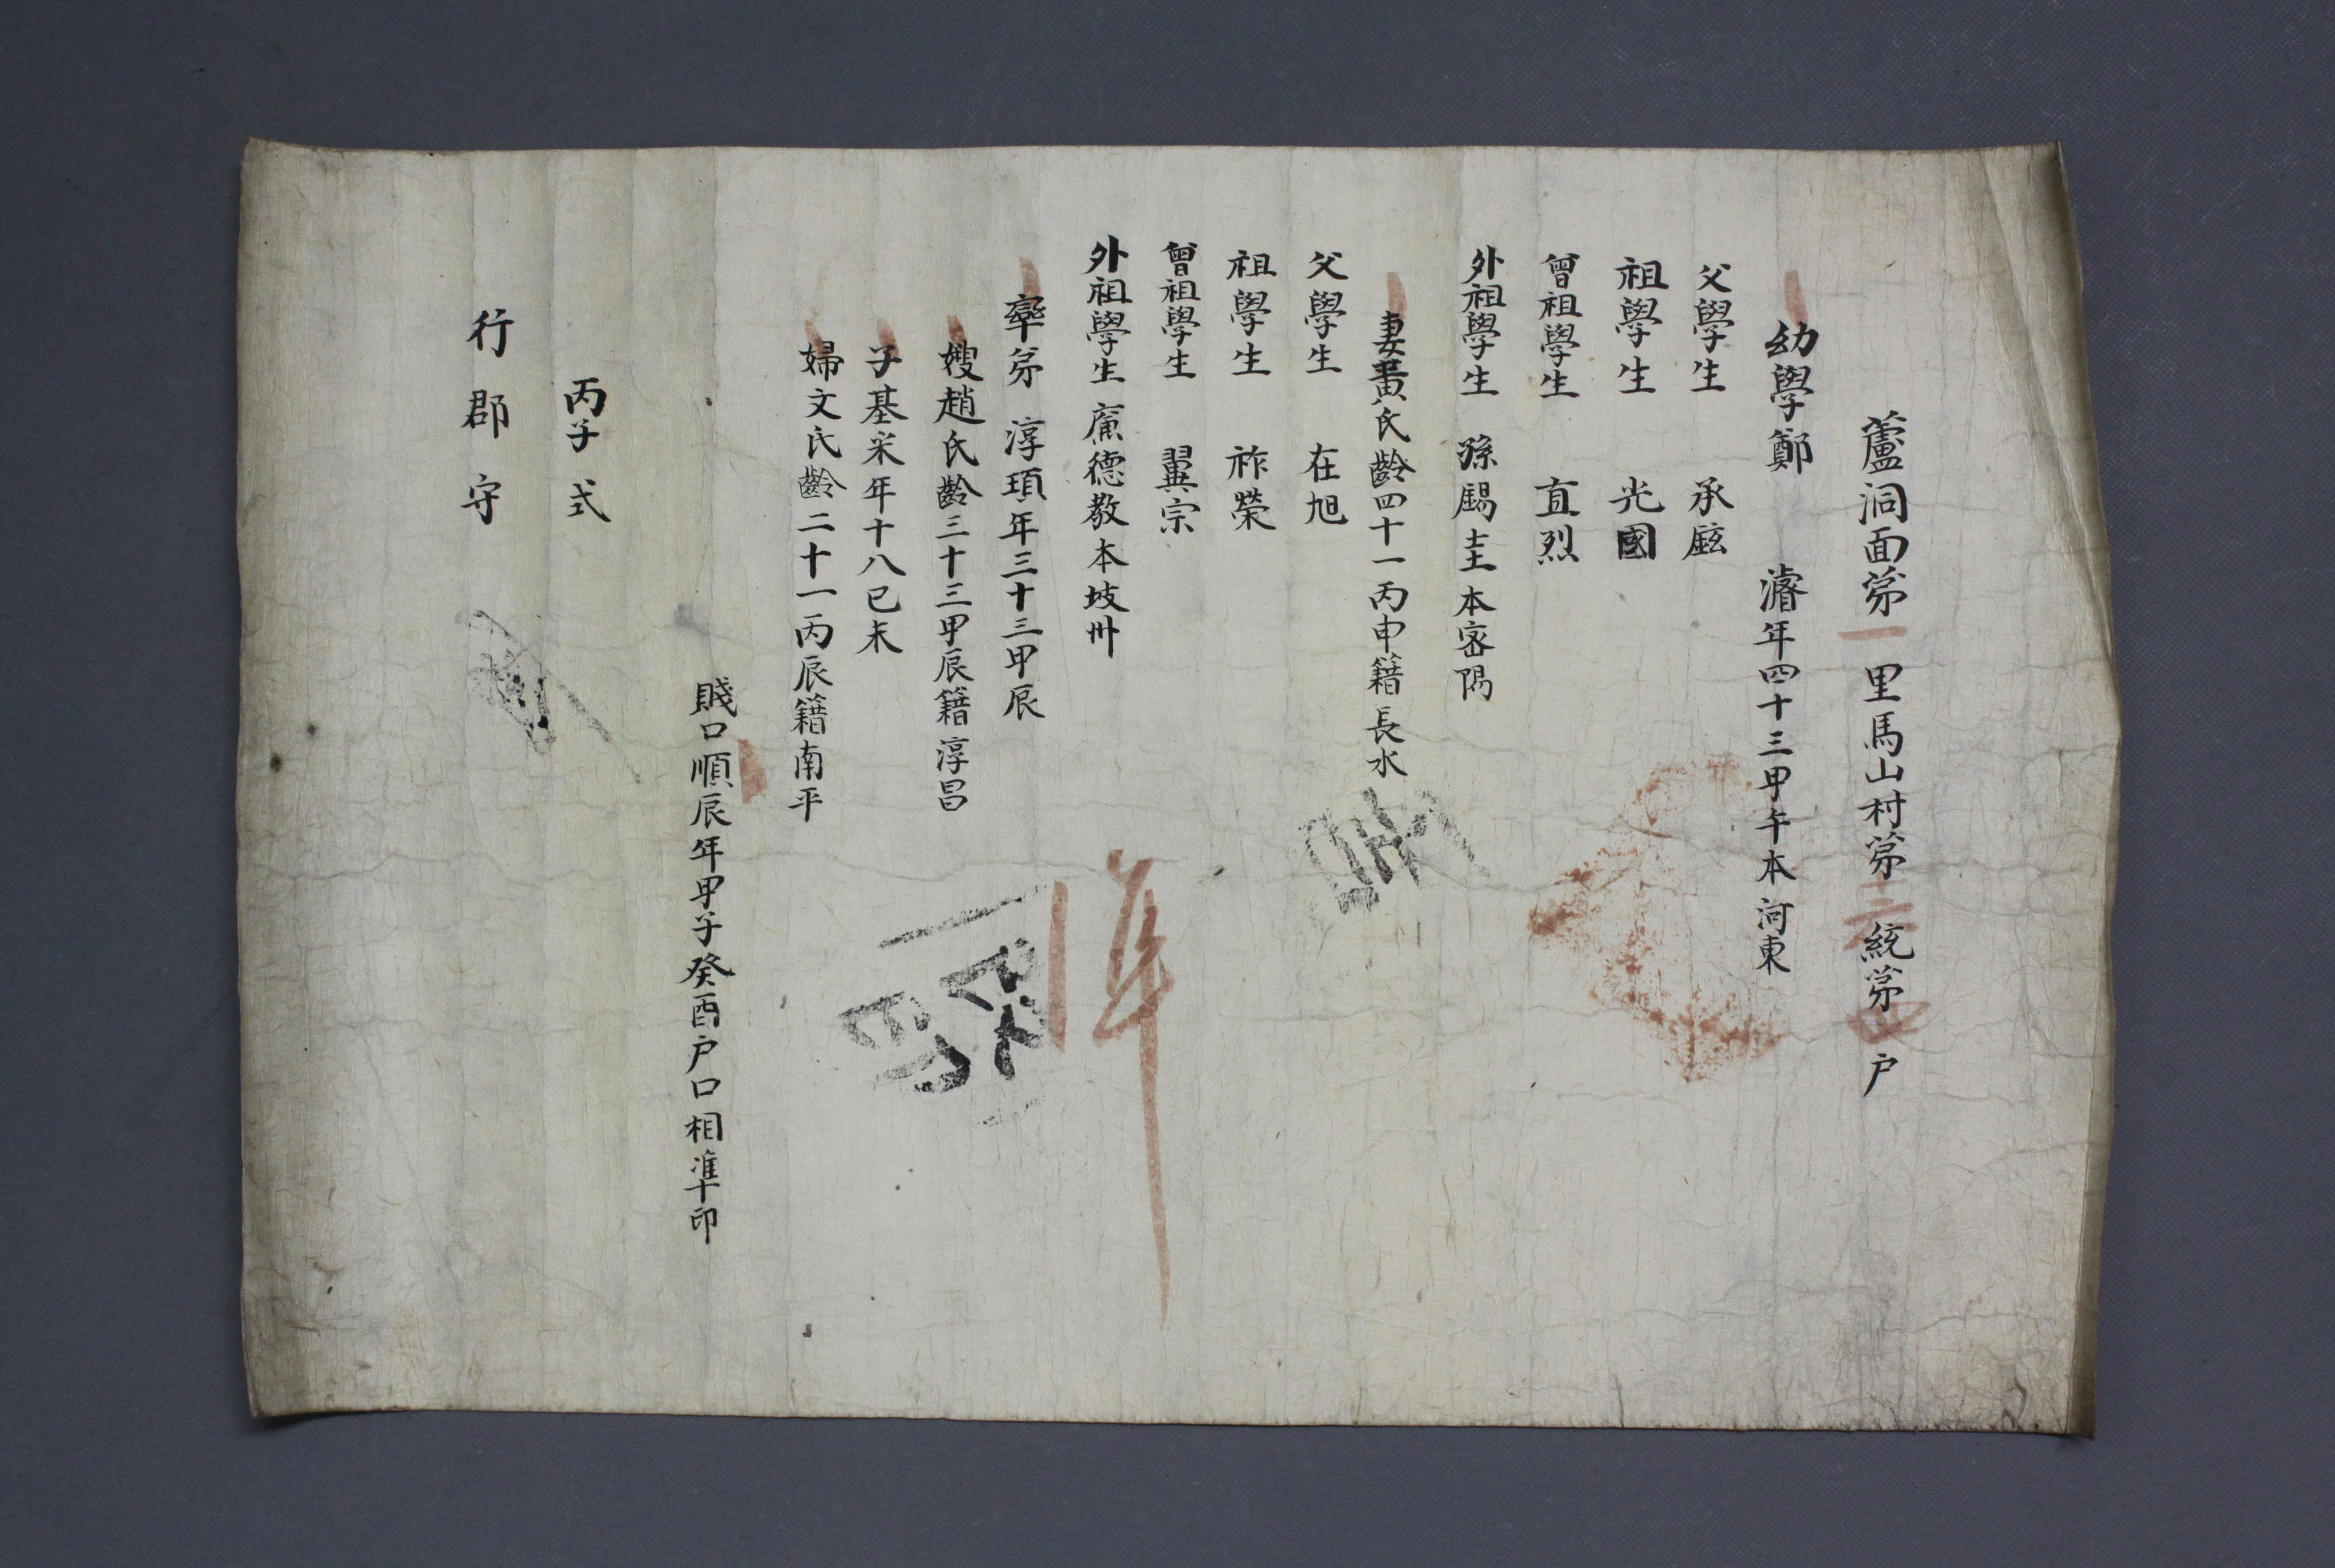 蘆洞面第一里馬山村第三統第四戶
幼學鄭 濬年四十三甲午本河東
父學生 承鉉
祖學生 光國
曾祖學生 直烈
外祖學生 孫錫圭本密陽
妻黃氏齡四十一丙申籍長水
父學生 在旭
祖學生 祚榮
曾祖學生 翼宗
外祖學生 廉德敎本坡州
率弟 淳頊年三十三甲辰
嫂趙氏齡三十三甲辰籍淳昌
子基采年十八己未
婦文氏齡二十一丙辰籍南平
賤口順辰年甲子癸酉戶口相準印
準
丙子式
行郡守